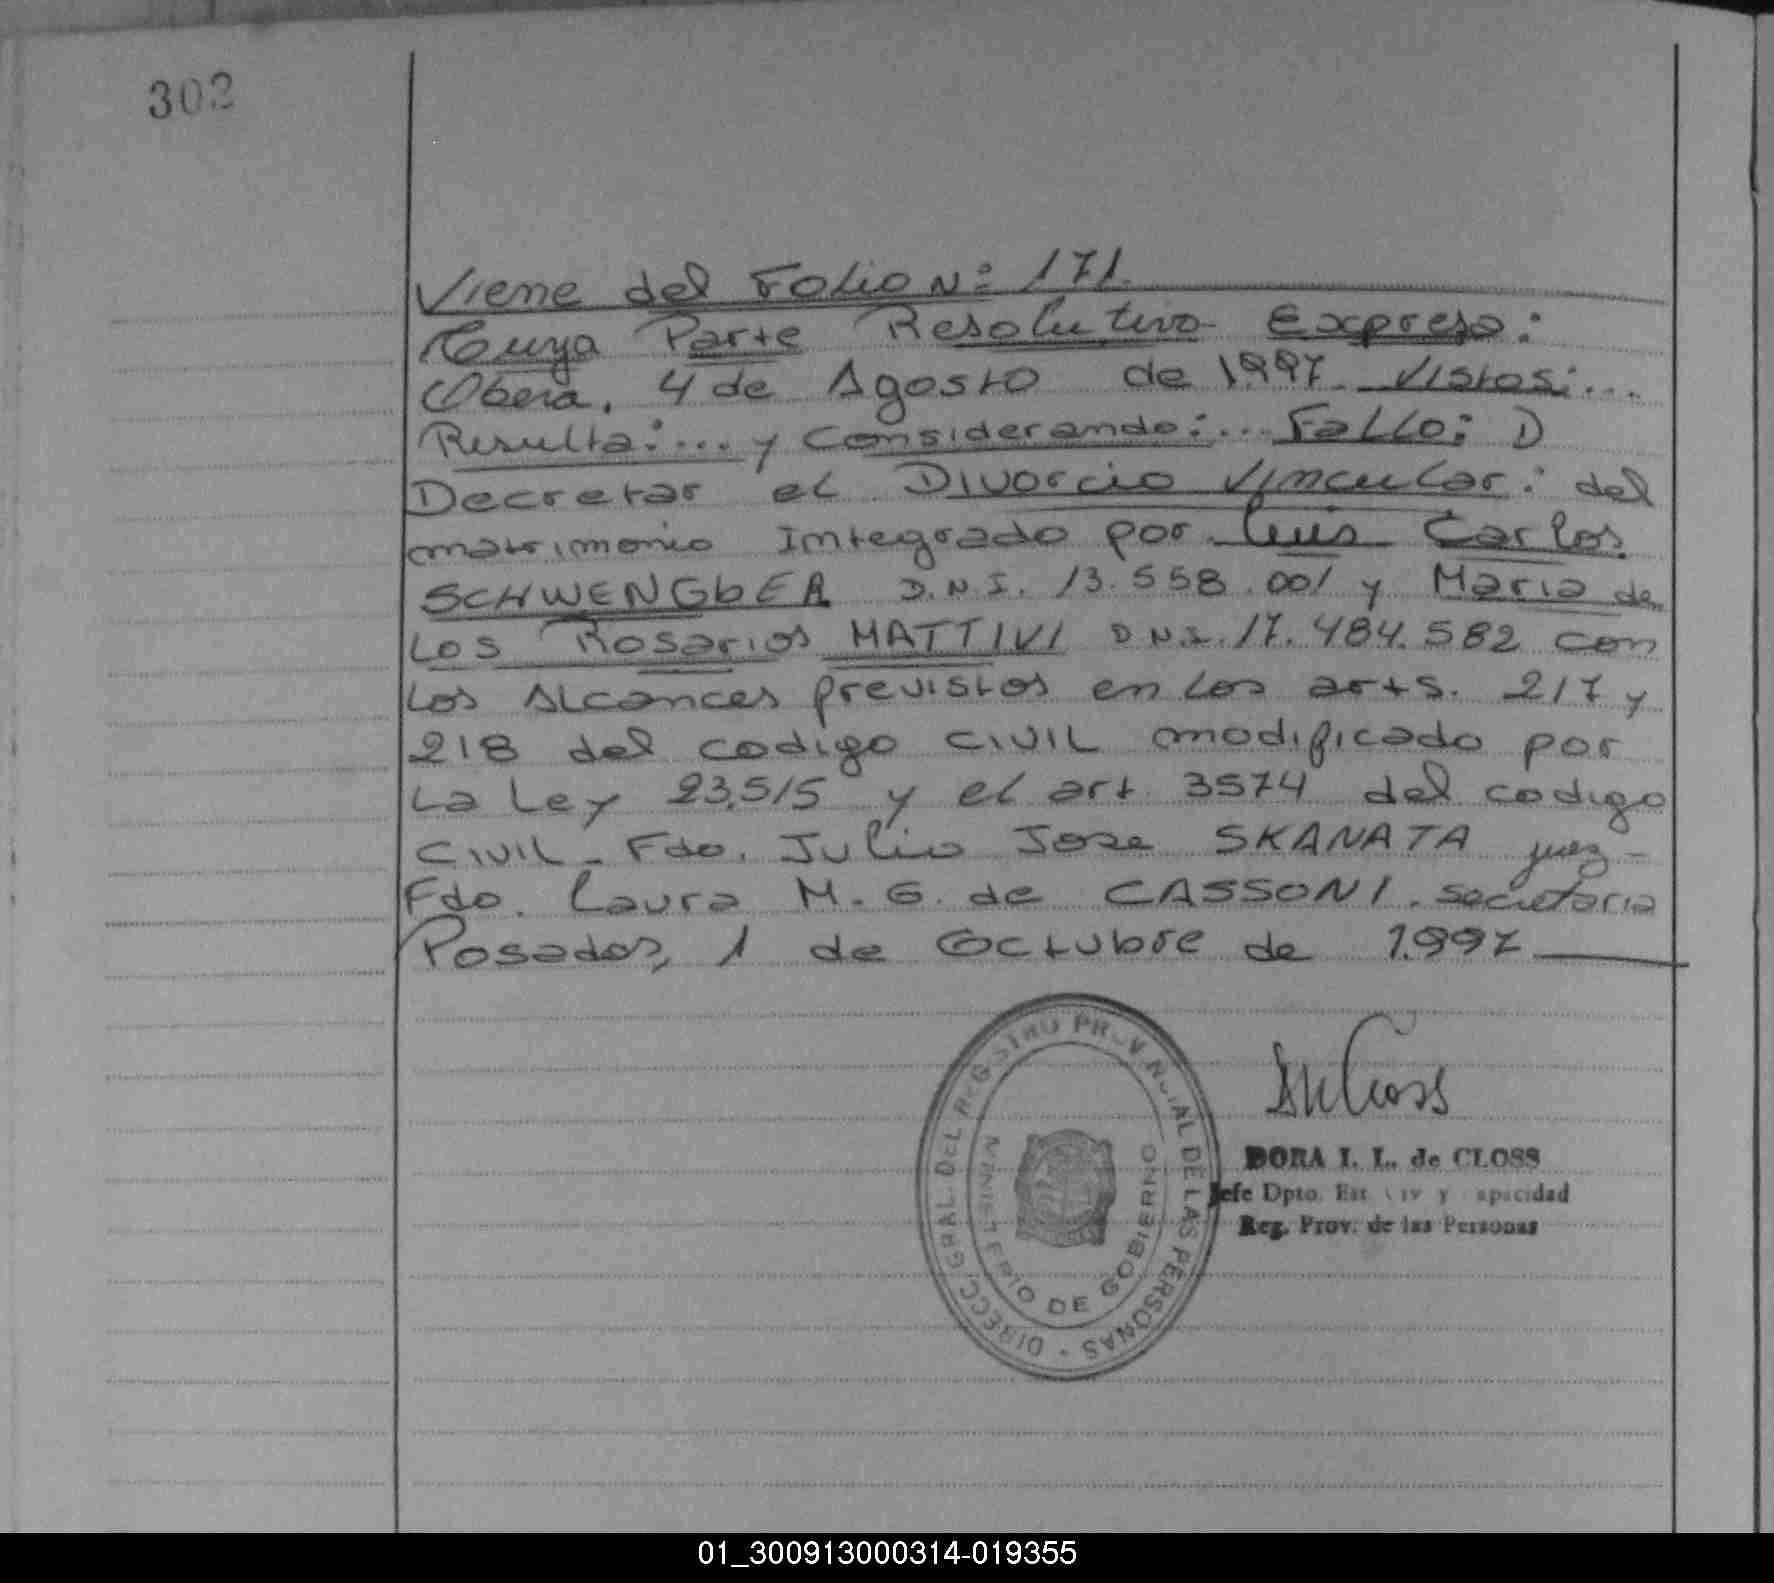 302
Viene del Folio N: 171.
Cuya Parte Resolutiva Expresa:
Obera, 4 de Agosto de 1997. Vistos:...
Resulta:... y Considerando:... Fallo: I)
Decretar el Divorcio Vincular: del
matrimonio Integrado por Luis Carlos
SCHWENGbER D.N.I. 13.558.001 y Maria de
Los Rosarios MATTIVI D.N.I. 17.484.582 con
Los Alcances previstos en Los arts. 217 y
218 del codigo CIVIL modificado por
La Ley 23.515 y el art. 3574 del codigo
CIVIL - Fdo. Julio Jose SKANATA juez -
Fdo. Laura M. G. de CASSONI. secretaria
Posadas, 1 de Octubre de 1.997
DIRECC. GRAL. DEL REGISTRO PROVINCIAL DE LAS PERSONAS -
MINISTERIO DE GOBIERNO
DORA I. L. de CLOSS
Jefe Dpto. Est. Civ y Capacidad
Reg. Prov. de las Personas
01_300913000314-019355